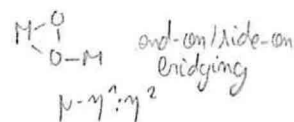 O
M end-on/side-on
O–M bridging
μ-η¹:η²